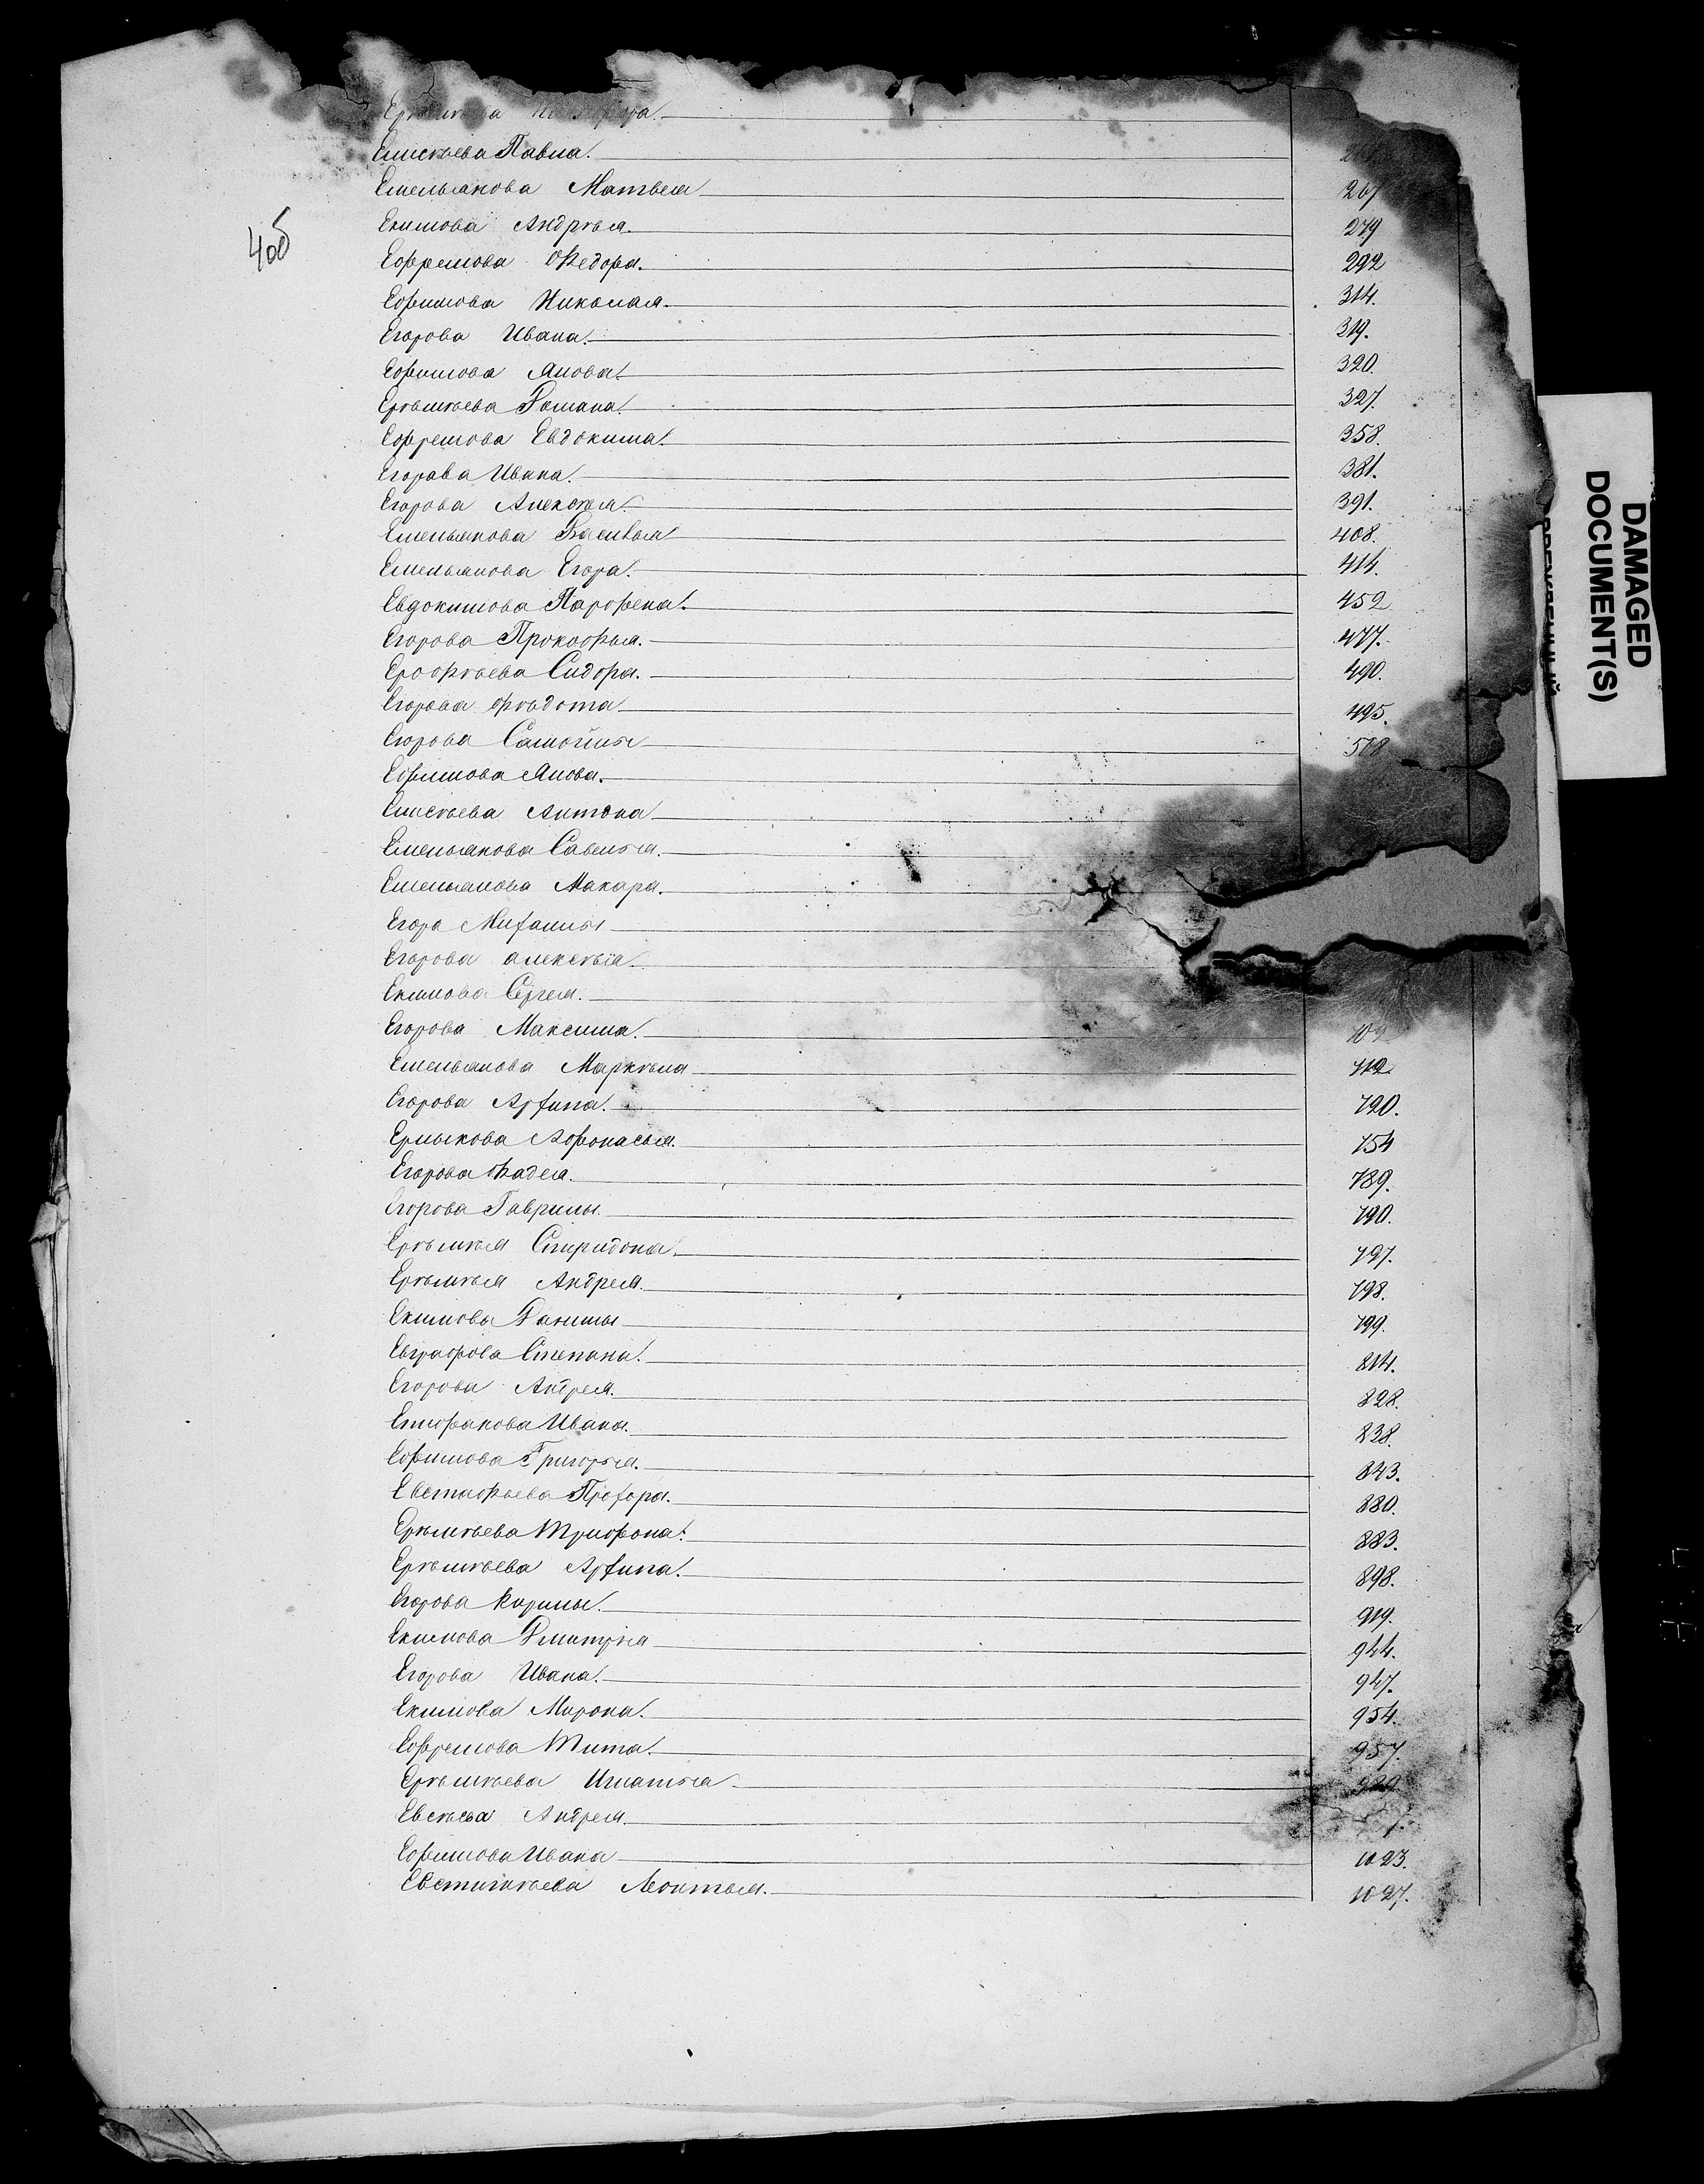 4об
Елисѣева Павла.
Емельянова Матвея 267
Екимова Андрѣя. 279
Ефремова Ѳедора. 292
Ефимова Николая. 314.
Егорова Ивана. 319.
Ефимова Якова. 320.
Еремѣева Романа. 327.
Ефремова Евдокима. 358.
Егорова Ивана. 381.
Егорова Алексѣя. 391.
Емельянова Василья 408.
Емельянова Егора. 414.
Евдокимова Парфена. 452
Егорова Прокофья. 477.
Ерофѣева Сидора. 490.
Егорова Ѳѣдота 495.
Егорова Самойлы 508
Ефимова Якова.
Елисѣева Антона
Емельянова Савелья.
Емельянова Макара.
Егора Михаилы
Егорова алексѣя.
Екимова Сергея.
Егорова Максима. 709
Емельянова Маркѣла 712.
Егорова Архипа. 720.
Ермакова Афонасья. 754
Егорова Фадея. 789.
Егорова Гаврилы. 790.
Еремѣя Спиридона. 797.
Еремѣя Андрея. 798.
Екимова Данилы 799.
Евграфова Степана. 814.
Егорова Андрея. 828.
Епифанова Ивана. 838.
Ефимова Григорья. 843.
Евстафьева Прохора. 880.
Еремѣева Трифона. 883.
Еремѣева Архипа. 898.
Егорова Кирилы. 919.
Екимова Дмитрья 944.
Егорова Ивана. 947.
Екимова Мирона. 954.
Ефремова Тита. 957.
Еремѣева Игнатья 980
Евсѣева Андрея.
Ефимова Ивана 1023.
Евстигнѣева Леонтья. 1027.
DAMAGED
DOCUMENT(S)